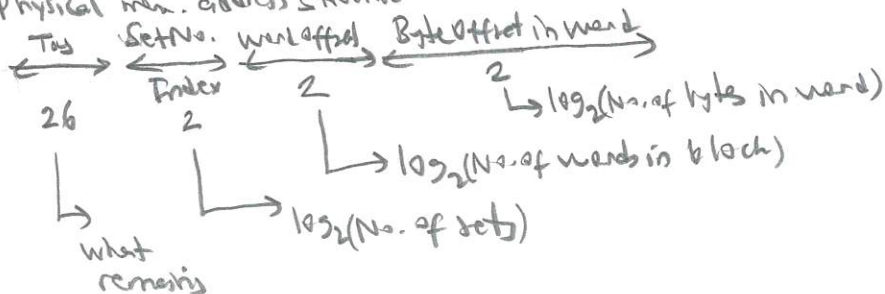 Physical mem. address
Tag Set No. word offset Byte Offset in word
Index 2 2
26 2
log₂(No. of bytes in word)
log₂(No. of words in block)
log₂(No. of sets)
what
remains